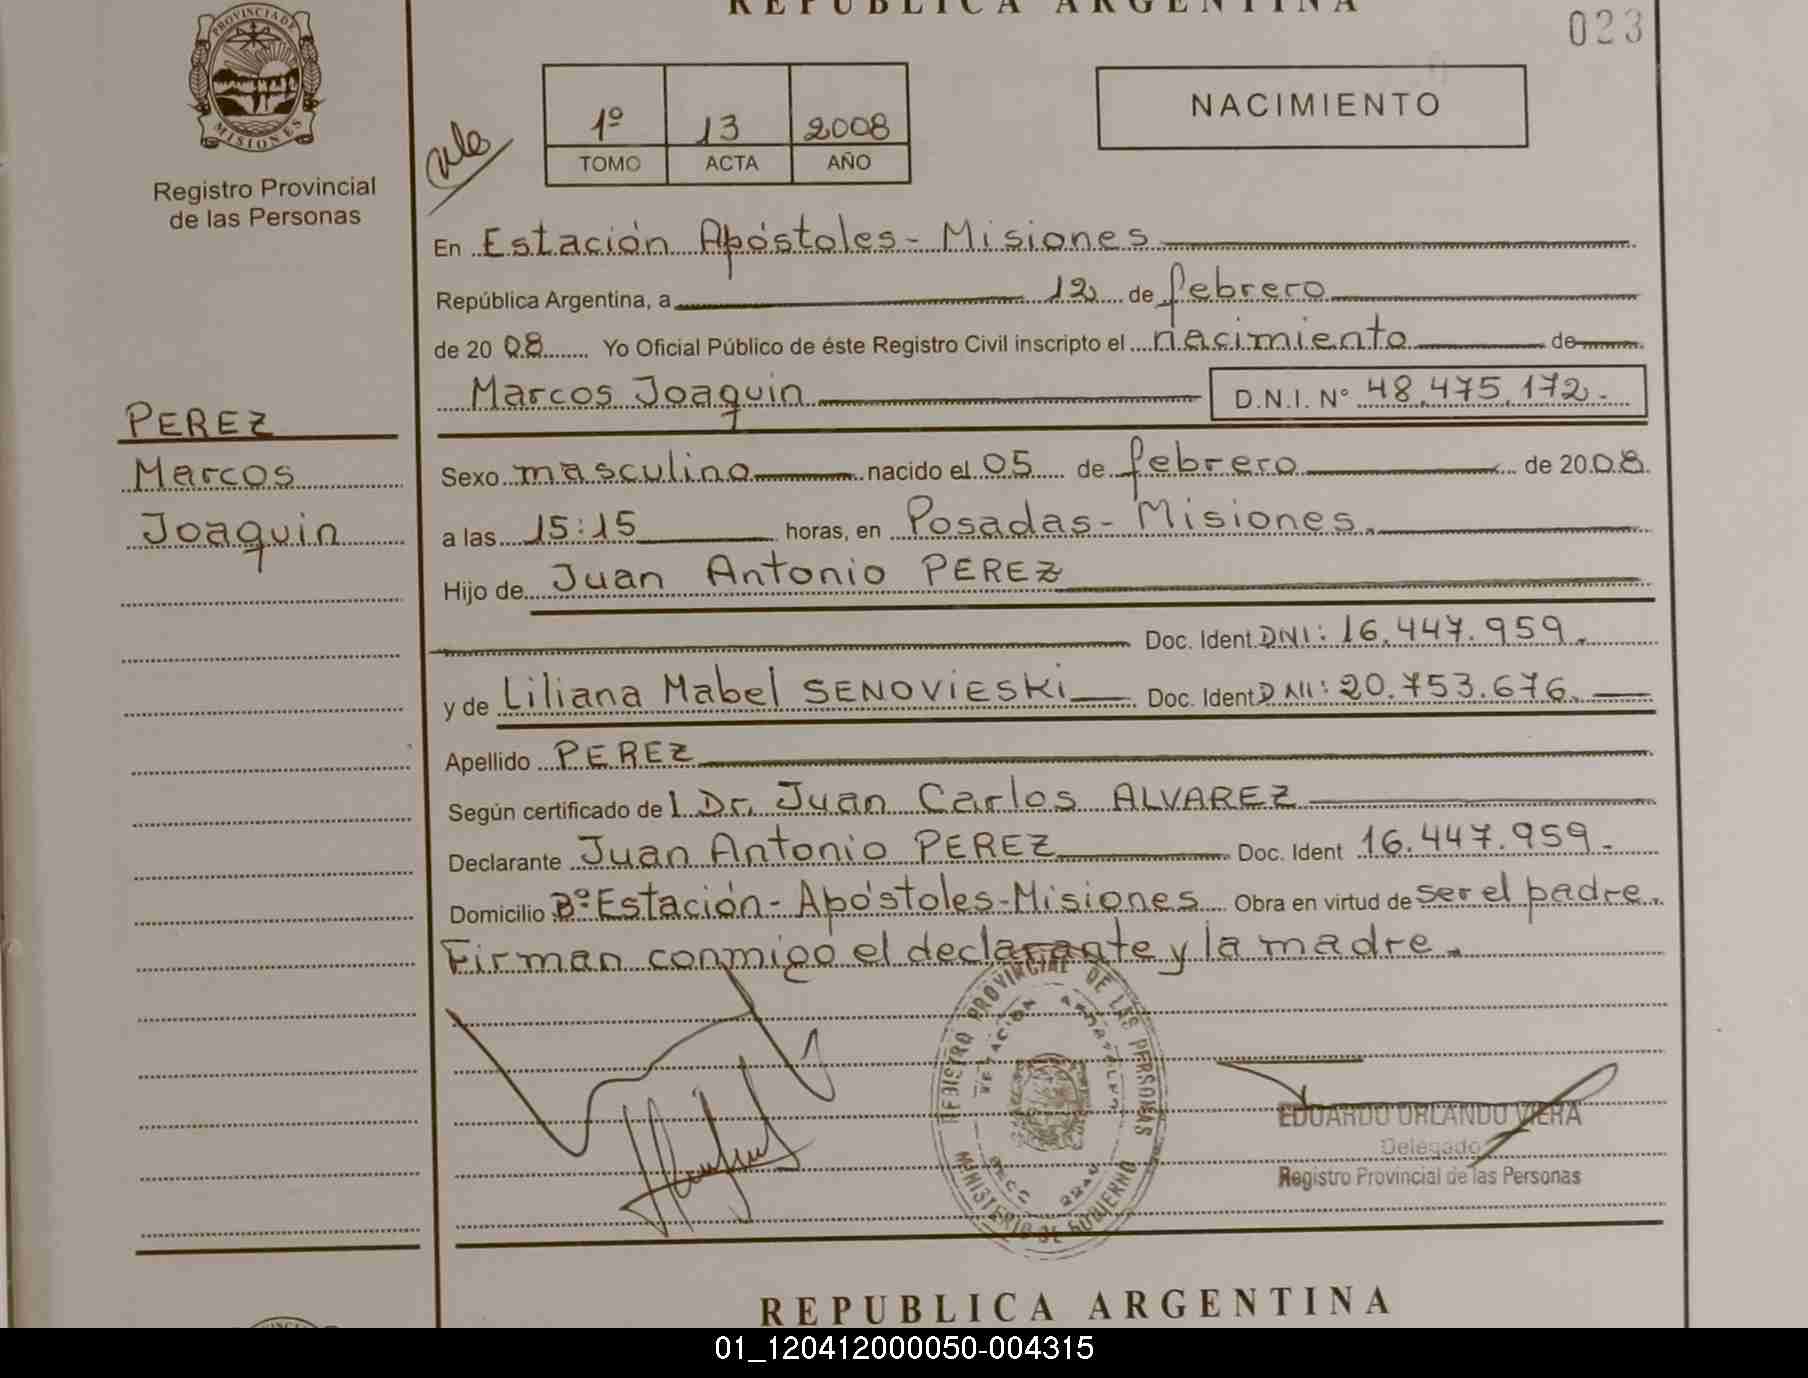 REPUBLICA ARGENTINA
023
PROVINCIA DE
MISIONES
Registro Provincial
de las Personas
1º 13 2008
TOMO ACTA AÑO
NACIMIENTO
En Estación Apóstoles - Misiones
República Argentina, a 12 de febrero
de 20 08 Yo Oficial Público de éste Registro Civil inscripto el nacimiento de
Marcos Joaquin D.N.I. Nº 48.475.172.-
PEREZ
Marcos
Joaquin
Sexo masculino nacido el 05 de febrero de 2008.
a las 15:15 horas, en Posadas - Misiones.
Hijo de Juan Antonio PEREZ
Doc. Ident. DNI: 16.447.959.
y de Liliana Mabel SENOVIESKI Doc. Ident DNI: 20.753.676.
Apellido PEREZ
Según certificado de l Dr. Juan Carlos ALVAREZ
Declarante Juan Antonio PEREZ Doc. Ident 16.447.959.
Domicilio Bº Estación - Apóstoles - Misiones Obra en virtud de ser el padre.
Firman conmigo el declarante y la madre.
REGISTRO PROVINCIAL DE LAS PERSONAS
MINISTERIO DE GOBIERNO
EDUARDO ORLANDO VIERA
Delegado
Registro Provincial de las Personas
REPUBLICA ARGENTINA
01_120412000050-004315